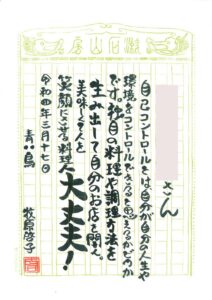 さん
自己コントロールとは自分が自分の人生や
環境をコントロールできると思えるかどうか
です。独自の料理や調理方法を
生み出して自分のお店を開く。
美味しくて人を
笑顔にさせる料理人
大丈夫！
令和四年三月十七日
青い鳥
牧原啓子